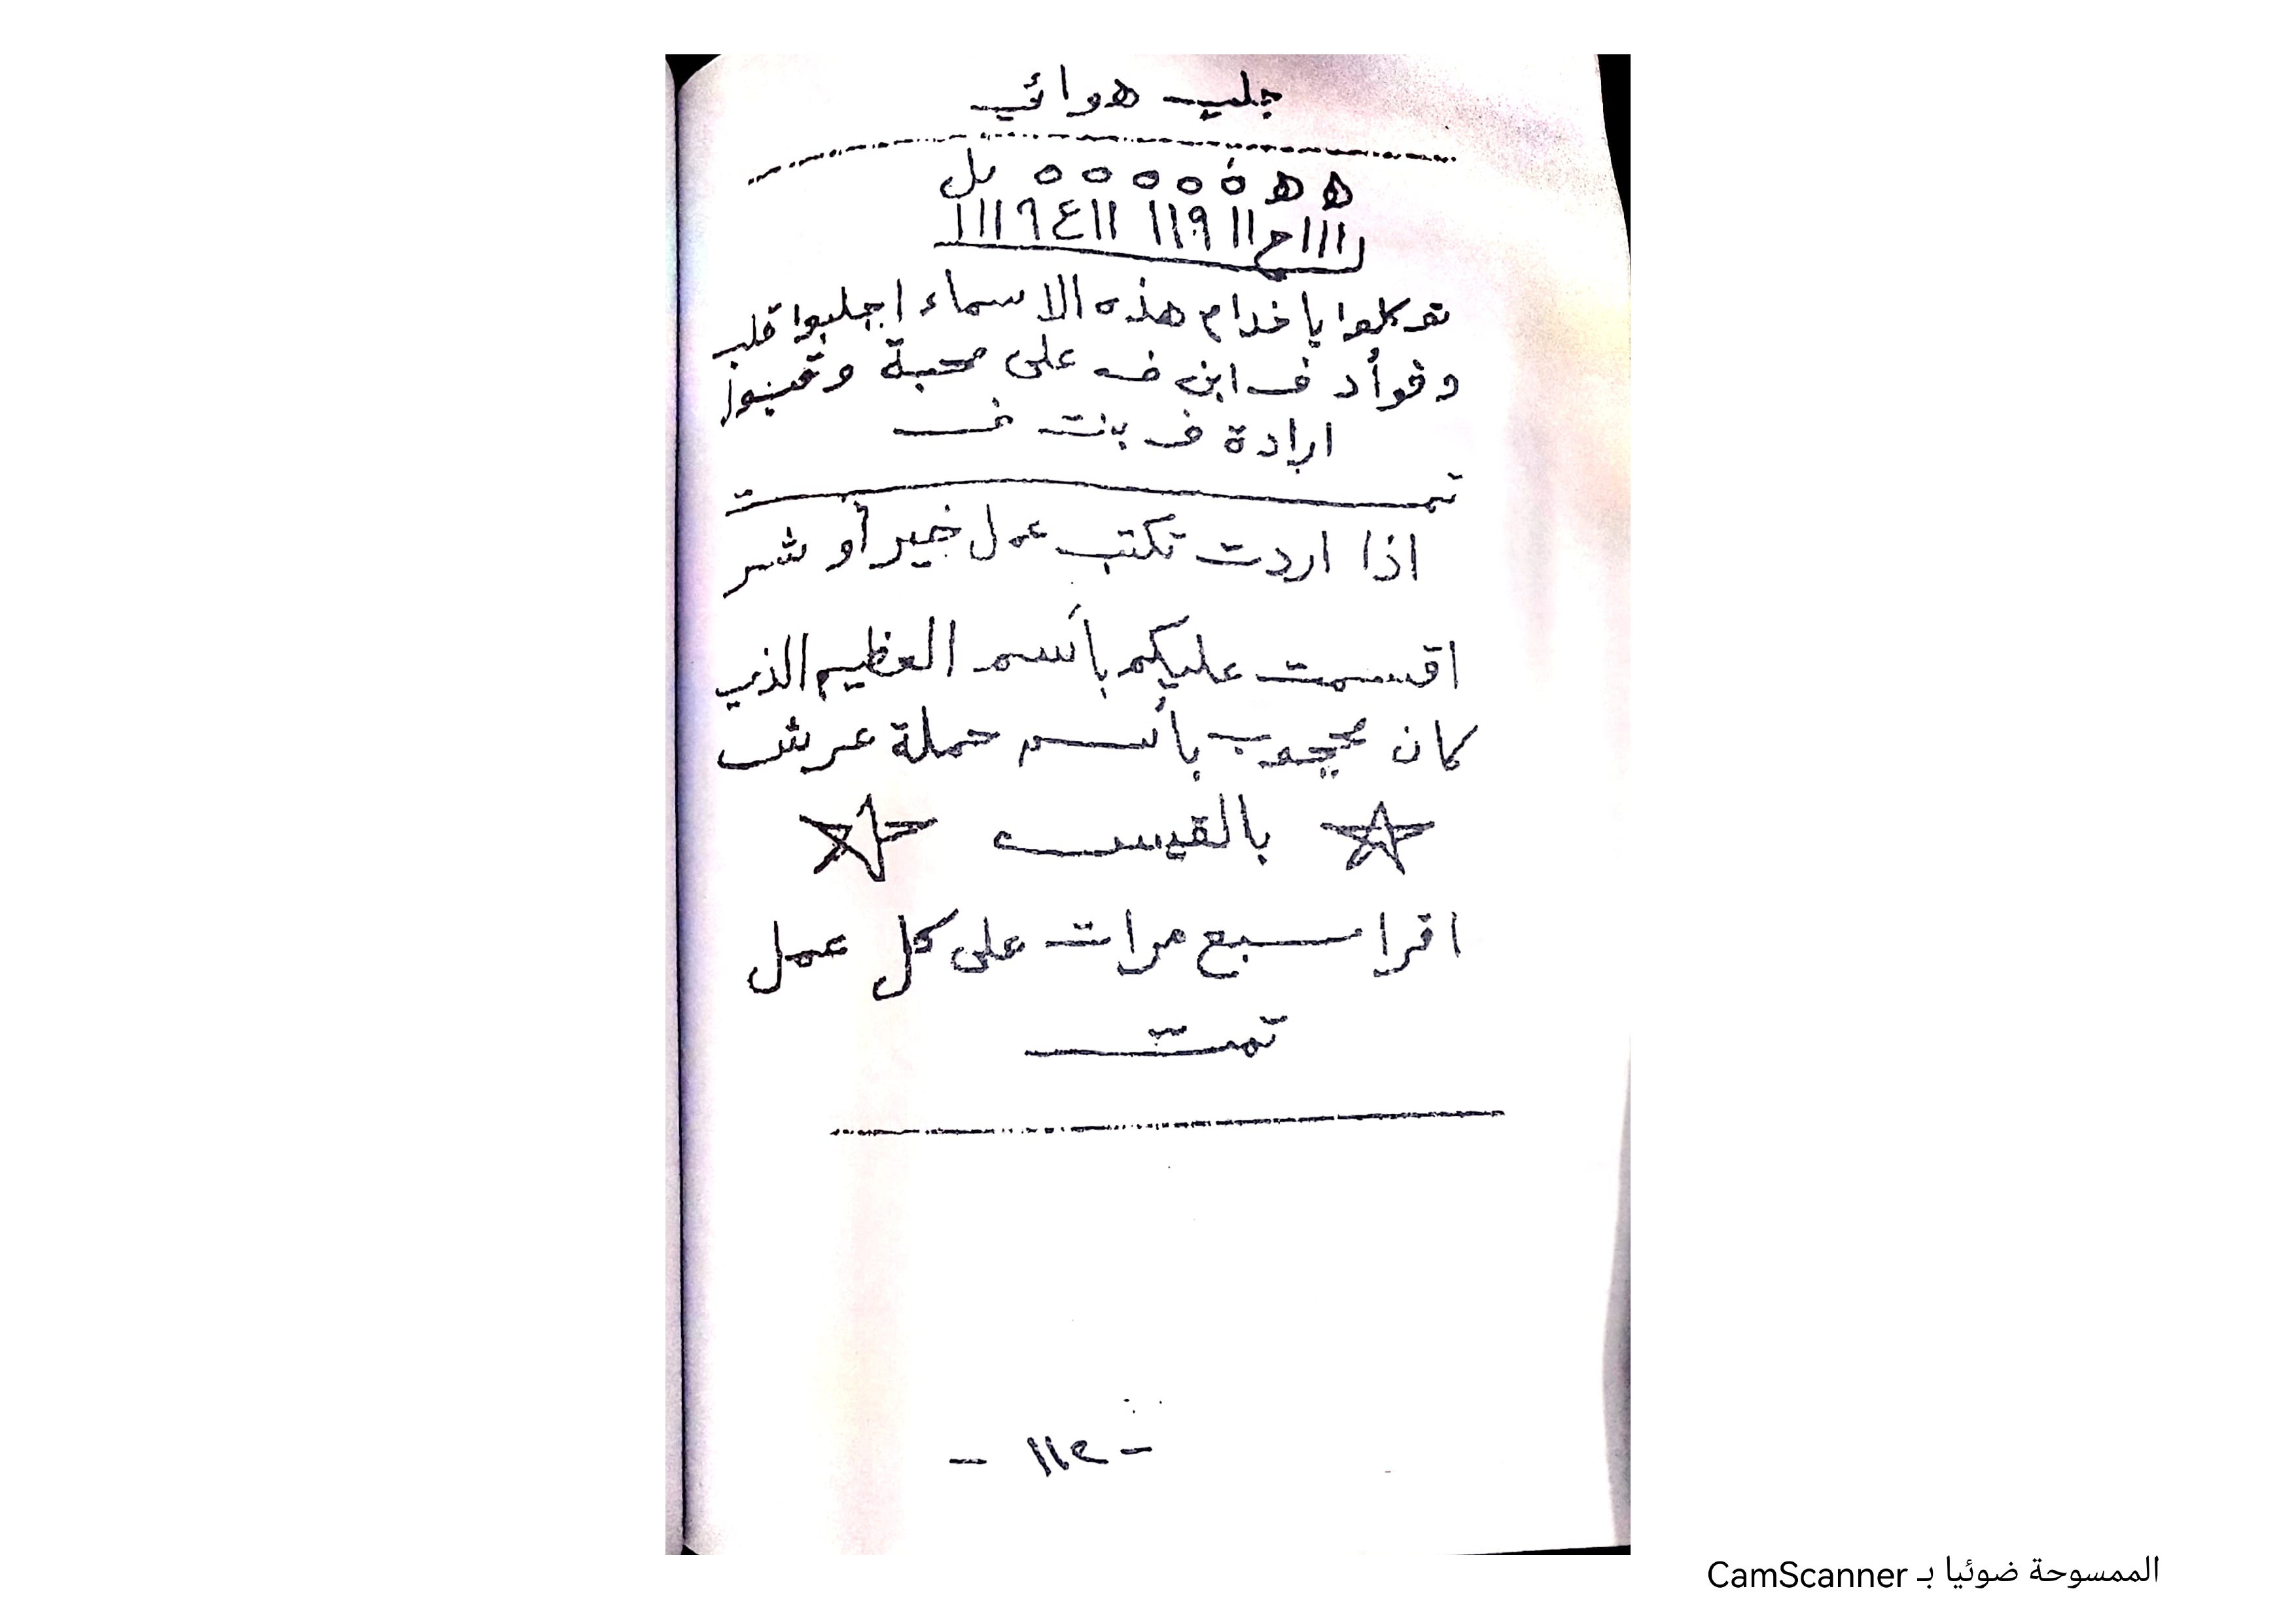 جلب هوائي
ه ه ه ه ه ه ه
١١١ح١١ ٩ ١١ ١١ ٤ ٩ ١١١
توكلوا يا خدام هذه الاسماء اجلبوا قلب
وفوأد ف ابن ف على محبة
ارادة ف بنت ف
تمت
اذا اردت تكتب عمل خير أو شر
اقسمت عليكم بأسم العظيم الذي
كان بأسم حملة عرش
اقرا سبع مرات على كل عمل
تمت
- ١١٤ -
الممسوحة ضوئيا بـ CamScanner